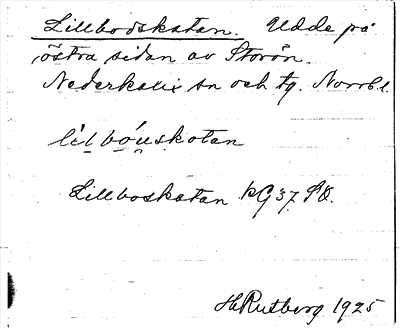 Lillbodskatan. Udde på
östra sidan av Storön.
Nederkalix sn och tg. Norrb. l
lìl bóuskotan
Lillboskatan KG 37 SÖ.
H. Rutberg 1925